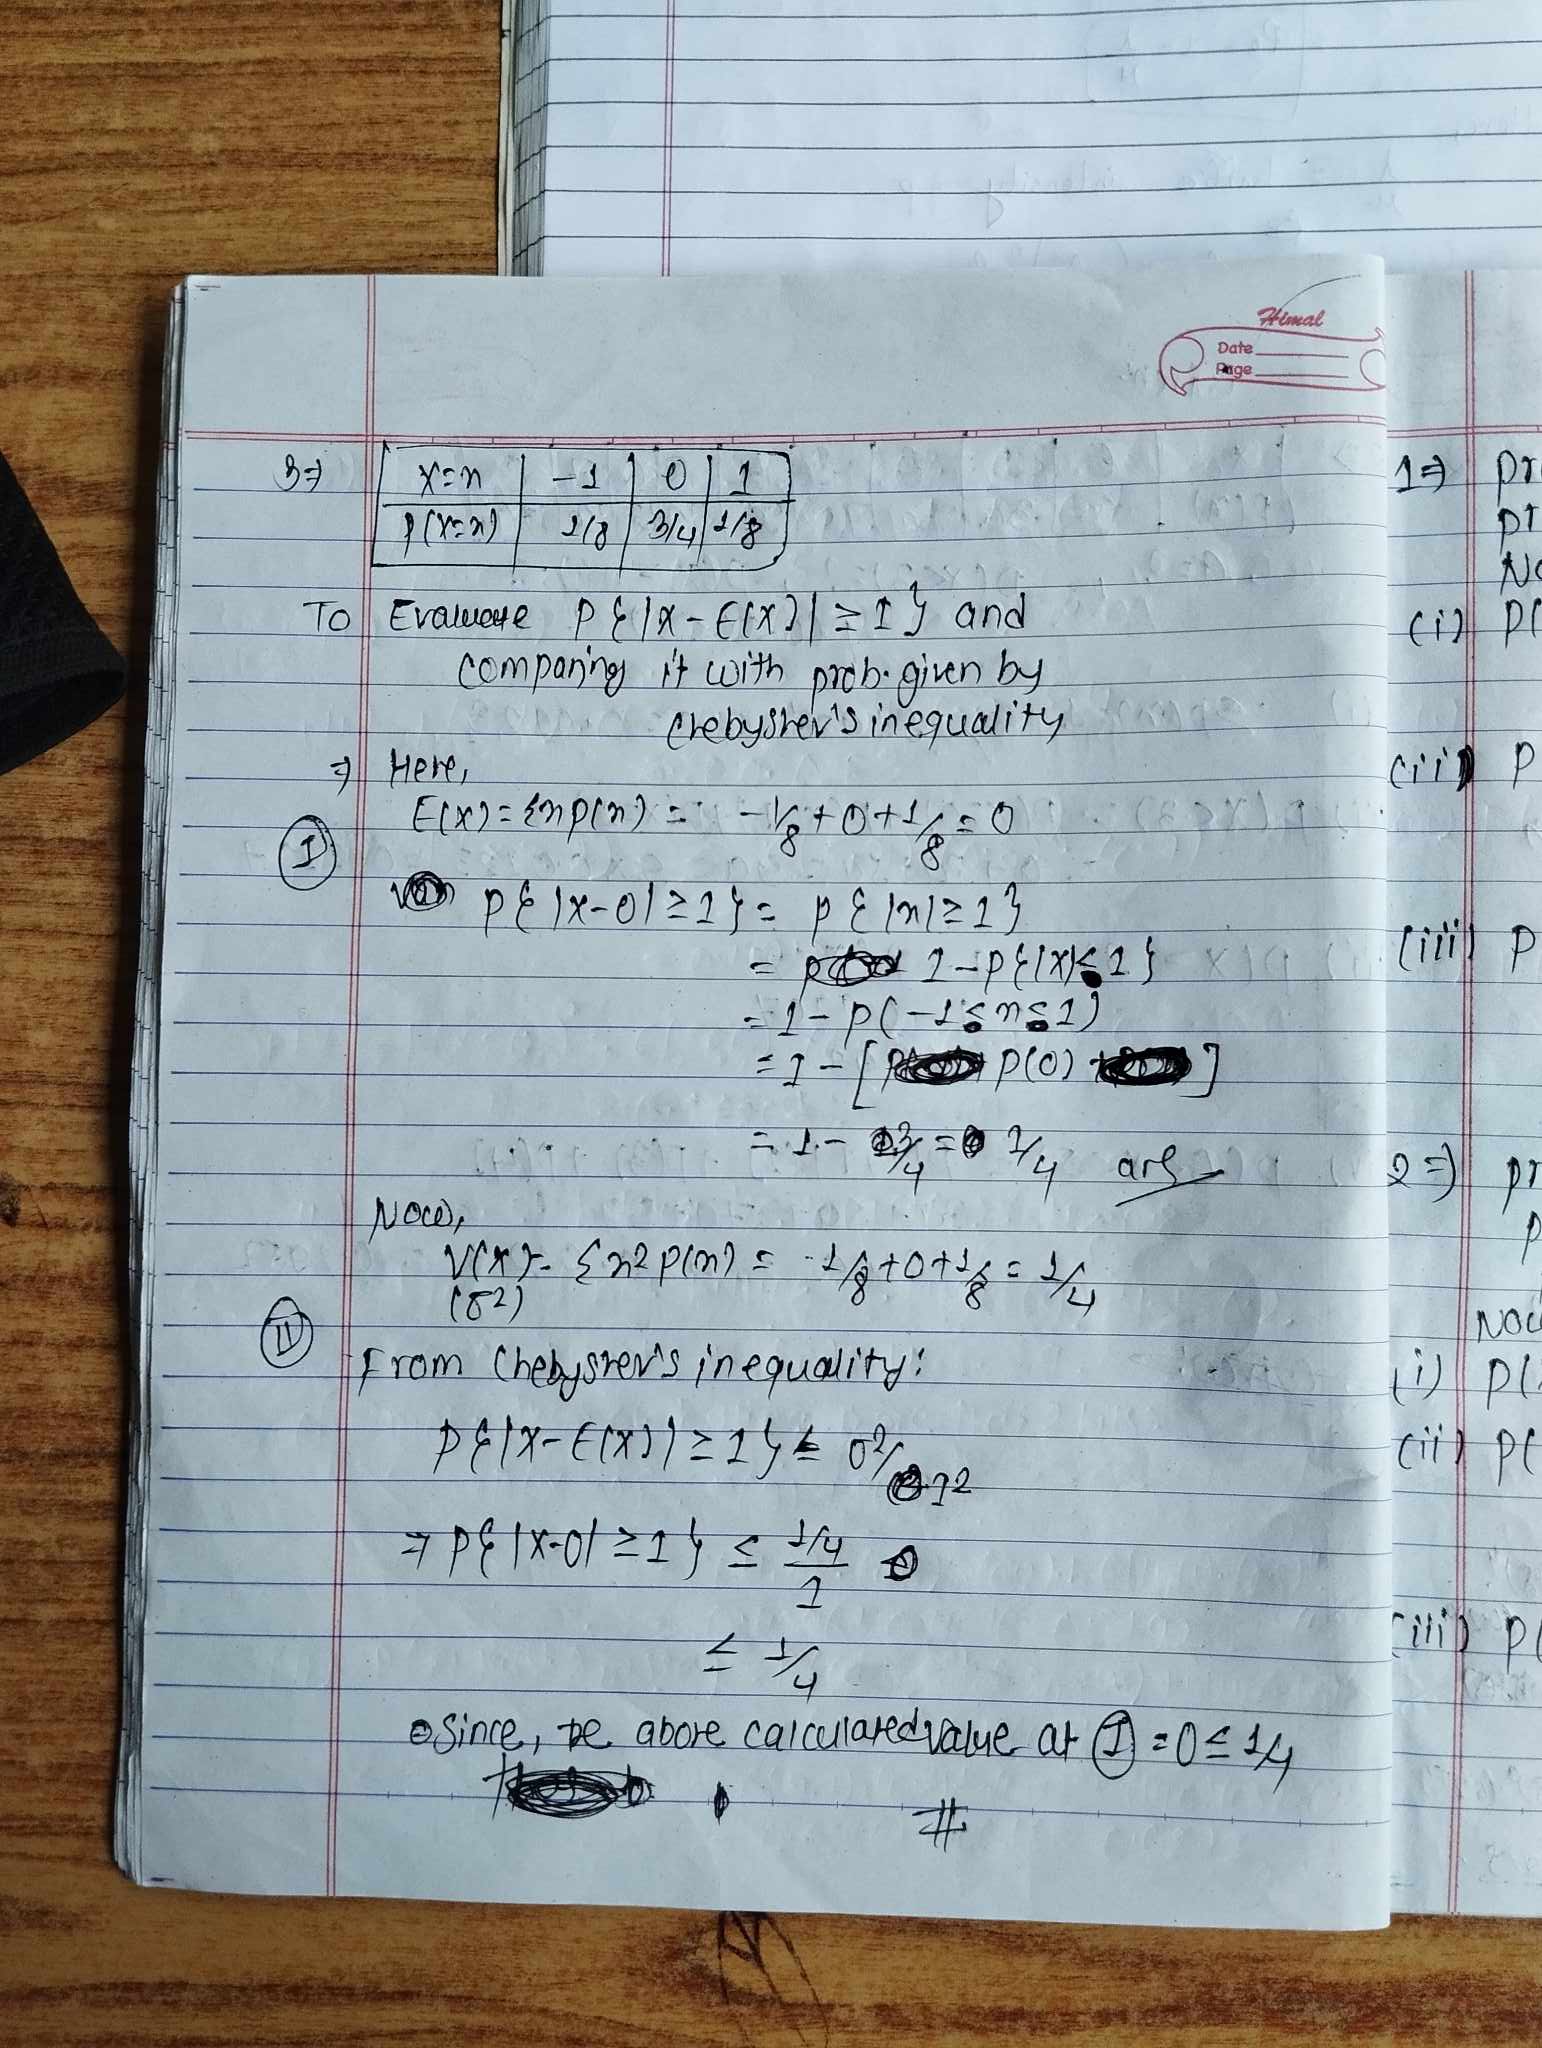 Himal
Date
Page
3⇒
X=n | -1 | 0 | 1
P(X=n) | 1/8 | 3/4 | 1/8
To Evaluate P{|X-E(X)|≥1} and
comparing it with prob. given by
chebyshev's inequality
⇒ Here,
E(X)=Σnp(n) = -1/8+0+1/8=0
I
P{|X-0|≥1}= P{|n|≥1}
= 1-P{|X|<1}
=1-P(-1≤n≤1)
=1-[P(0)]
=1-3/4= 1/4 ans
Now,
V(X)= Σn2p(n) = 1/8+0+1/8=1/4
(σ2)
II
From Chebyshev's inequality:
P{|X-E(X)|≥1}≤ σ2/12
⇒P{|X-0|≥1} ≤ 1/4/1
≤ 1/4
Since, the above calculated value at I =0≤1/4
#
1⇒ pr
pr
No
(i) P(
(ii) P
(iii) P
2⇒) pr
P
Now
(i) P(
(ii) P(
(iii) P(